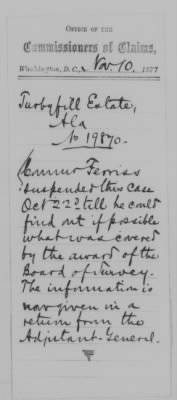 OFFICE OF THE
Commissioners of Claims,
Washington, D.C., Nov 10, 1877
Turbyfill Estate,
Ala
No 19870.
Commr Ferriss
suspended this case
Oct 22d till he could
find out if possible
what was covered
by the award of the
Board of Survey.
The information is
now given in a
return from the
Adjutant-General.